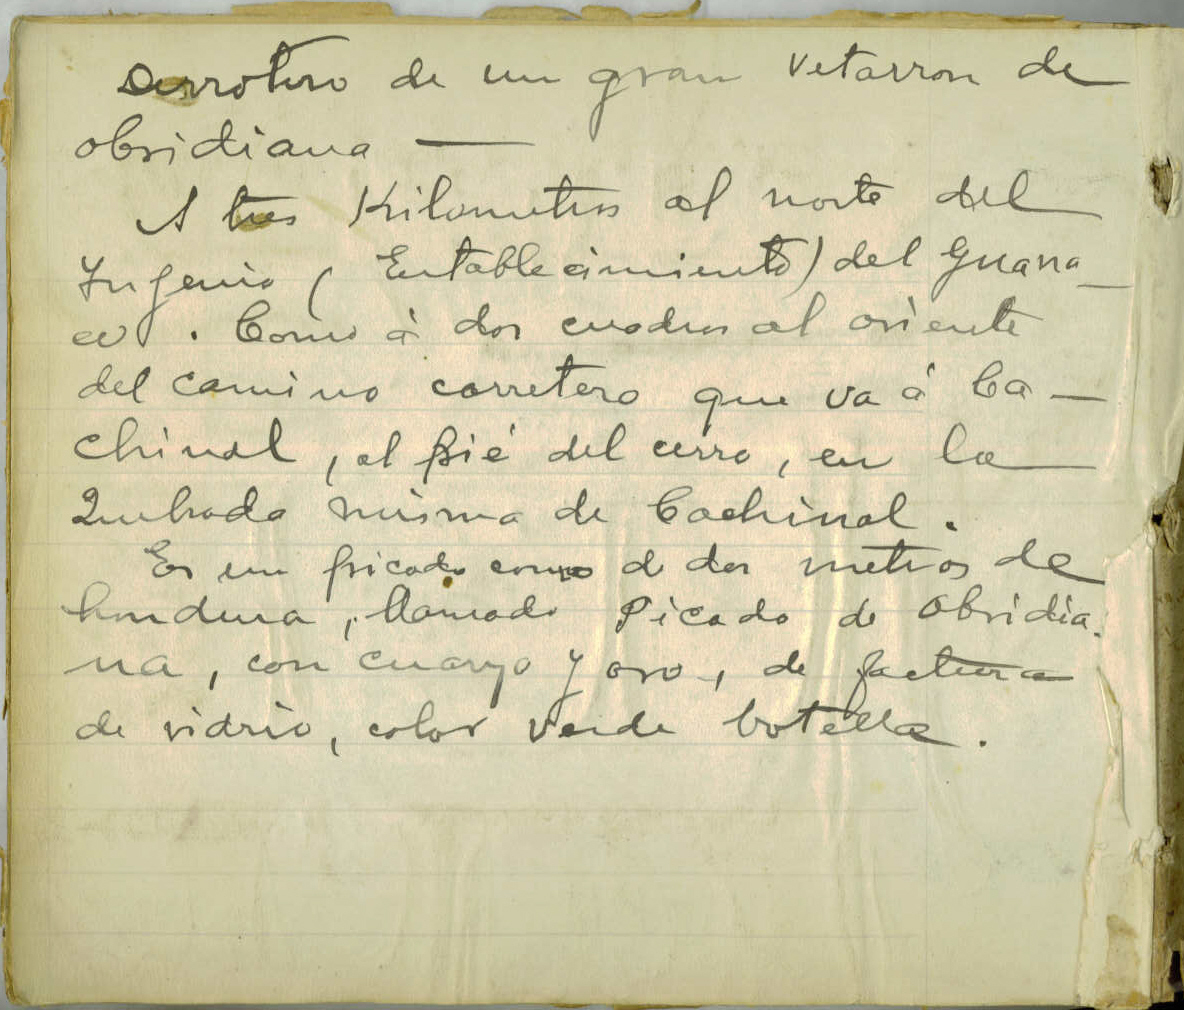 Derrotero de un gran vetarron de
obsidiana —
A tres Kilometros al norte del
Ingenio ( Establecimiento) del Guana_
co . Como á dos cuadras al oriente
del camino carretero que va á Ca —
chinal , al pié del cerro , en la
Quebrada misma de Cachinal .
Es un picado como de dos metros de
hondura , llamado Picado de Obsidia.
na , con cuarzo y oro , de factura
de vidrio , color verde botella .